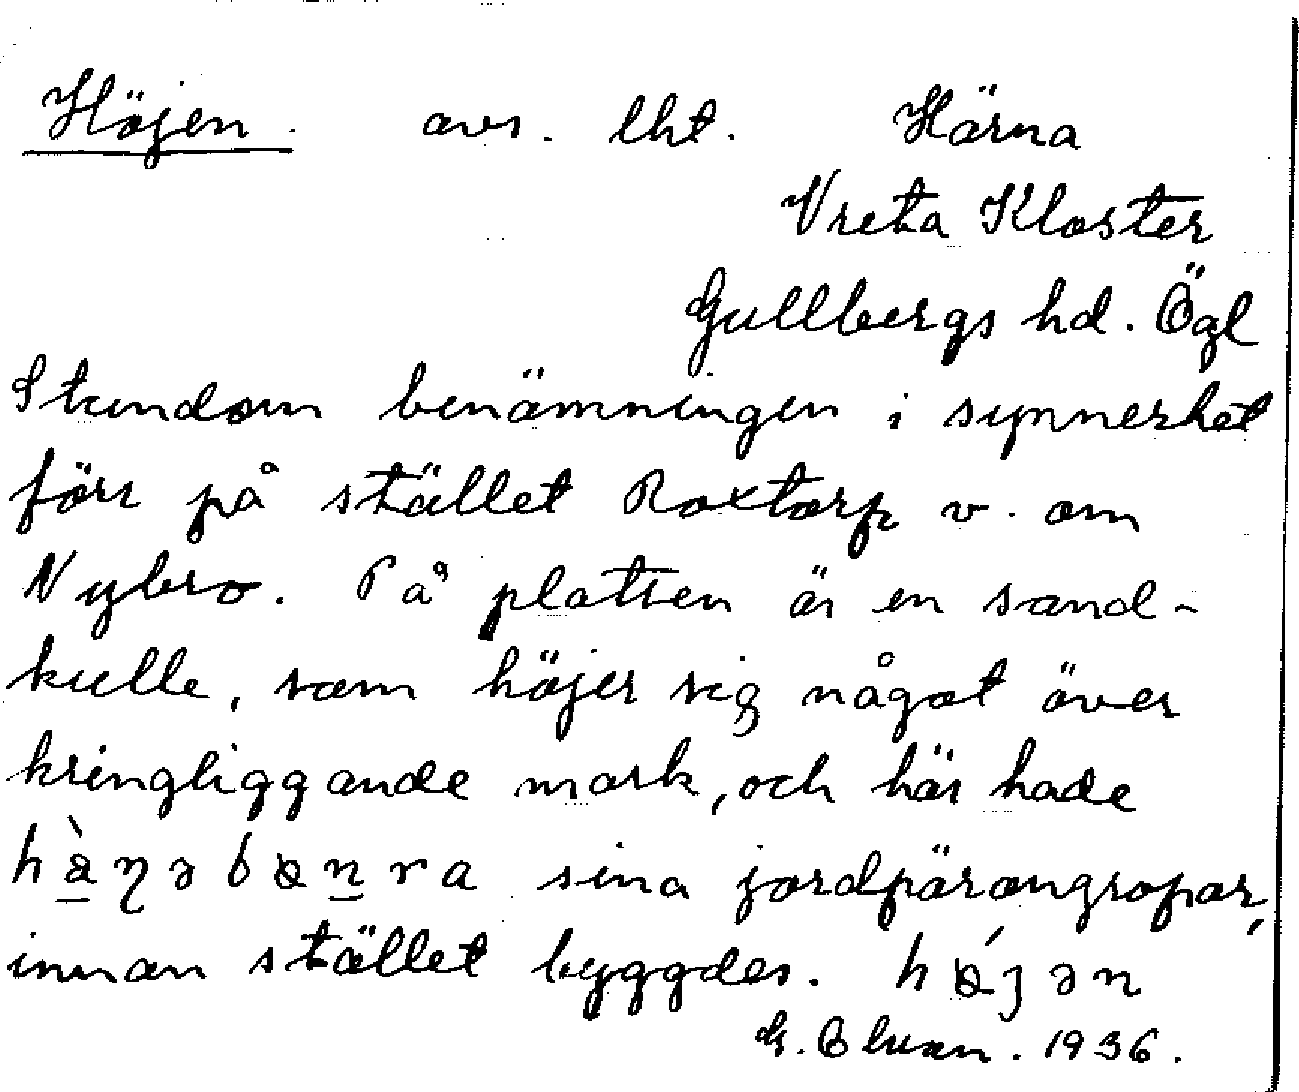 Höjen. avs. lht. Härna
Vreta Kloster
Gullbergs hd. Ögl
Stundom benämningen i synnerhet
förr på stället Roxtorp v. om
Nybro. På platsen är en sand-
kulle, som höjer sig något över
kringliggande mark, och här hade
sina jordpärongropar,
innan stället byggdes.
G. 1936.